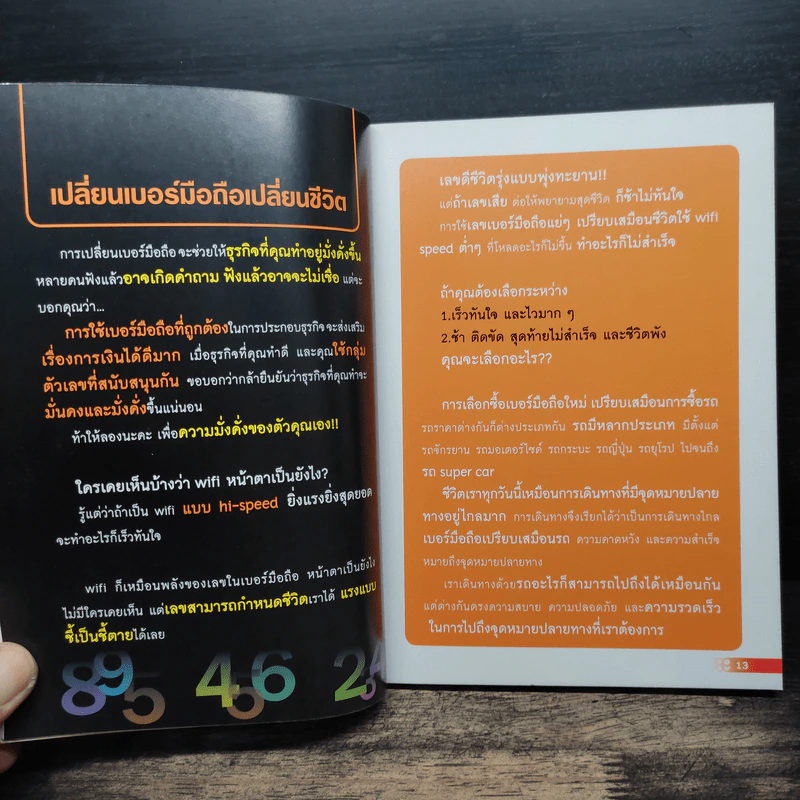 เปลี่ยนเบอร์มือถือเปลี่ยนชีวิต
การเปลี่ยนเบอร์มือถือ จะช่วยให้ธุรกิจที่คุณทำอยู่มั่งดั่งขึ้น
หลายคนฟังแล้วอาจเกิดคำถาม ฟังแล้วอาจจะไม่เชื่อ แต่จะ
บอกคุณว่า...
การใช้เบอร์มือถือที่ถูกต้องในการประกอบธุรกิจ จะส่งเสริม
เรื่องการเงินได้ดีมาก เมื่อธุรกิจที่คุณทำดี และคุณใช้กลุ่ม
ตัวเลขที่สนับสนุนกัน ขอบอกว่ากล้ายืนยันว่าธุรกิจที่คุณทำจะ
มั่นคงและมั่งคั่งขึ้นแน่นอน
ท้าให้ลองนะคะ เพื่อความมั่งคั่งของตัวคุณเอง!!
ใครเคยเห็นบ้างว่า wifi หน้าตาเป็นยังไง?
รู้แต่ว่าถ้าเป็น wifi แบบ hi-speed ยิ่งแรงยิ่งสุดยอด
จะทำอะไรก็เร็วทันใจ
wifi ก็เหมือนพลังของเลขในเบอร์มือถือ หน้าตาเป็นยังไง
ไม่มีใครเคยเห็น แต่เลขสามารถกำหนดชีวิตเราได้ แรงแบบ
ชี้เป็นชี้ตายได้เลย
895 456 254
เลขดีชีวิตรุ่งแบบพุ่งทะยาน!!
แต่ถ้าเลขเสีย ต่อให้พยายามสุดชีวิต ก็ช้าไม่ทันใจ
การใช้เลขเบอร์มือถือแย่ๆ เปรียบเสมือนชีวิตใช้ wifi
speed ต่ำๆ ที่โหลดอะไรก็ไม่ขึ้น ทำอะไรก็ไม่สำเร็จ
ถ้าคุณต้องเลือกระหว่าง
1.เร็วทันใจ และไวมาก ๆ
2.ช้า ติดขัด สุดท้ายไม่สำเร็จ และชีวิตพัง
คุณจะเลือกอะไร??
การเลือกซื้อเบอร์มือถือใหม่ เปรียบเสมือนการซื้อรถ
รถราคาต่างกันก็ต่างประเภทกัน รถมีหลากประเภท มีตั้งแต่
รถจักรยาน รถมอเตอร์ไซค์ รถกระบะ รถญี่ปุ่น รถยุโรป ไปจนถึง
รถ super car
ชีวิตเราทุกวันนี้เหมือนการเดินทางที่มีจุดหมายปลาย
ทางอยู่ไกลมาก การเดินทางจึงเรียกได้ว่าเป็นการเดินทางไกล
เบอร์มือถือเปรียบเสมือนรถ ความคาดหวัง และความสำเร็จ
หมายถึงจุดหมายปลายทาง
เราเดินทางด้วยรถอะไรก็สามารถไปถึงได้เหมือนกัน
แต่ต่างกันตรงความสบาย ความปลอดภัย และความรวดเร็ว
ในการไปถึงจุดหมายปลายทางที่เราต้องการ
13